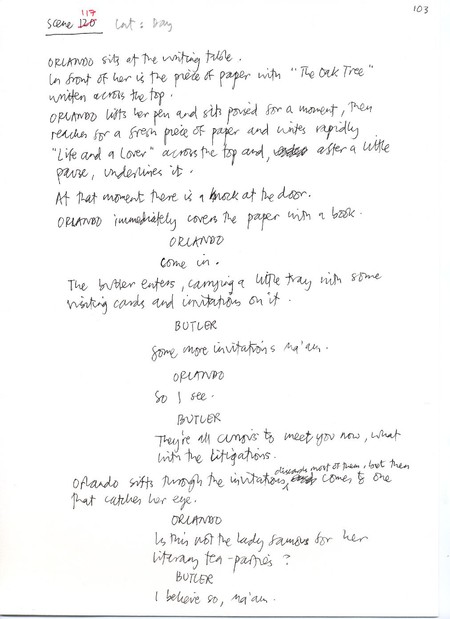 103
Scene 120 117 Int: Day
ORLANDO sits at the writing table.
In front of her is the piece of paper with "The Oak Tree"
written across the top.
ORLANDO lifts her pen and sits poised for a moment, then
reaches for a fresh piece of paper and writes rapidly
"Life and a Lover" across the top and, after a little
pause, underlines it.
At that moment there is a knock at the door.
ORLANDO immediately covers the paper with a book.
ORLANDO
Come in.
The butler enters, carrying a little tray with some
visiting cards and invitations on it.
BUTLER
Some more invitations ma'am.
ORLANDO
So I see.
BUTLER
They're all curious to meet you now, what
with the litigations.
Orlando sifts through the invitations, discards most of them, but then comes to one
that catches her eye.
ORLANDO
Is this not the lady famous for her
literary tea-parties?
BUTLER
I believe so, ma'am.